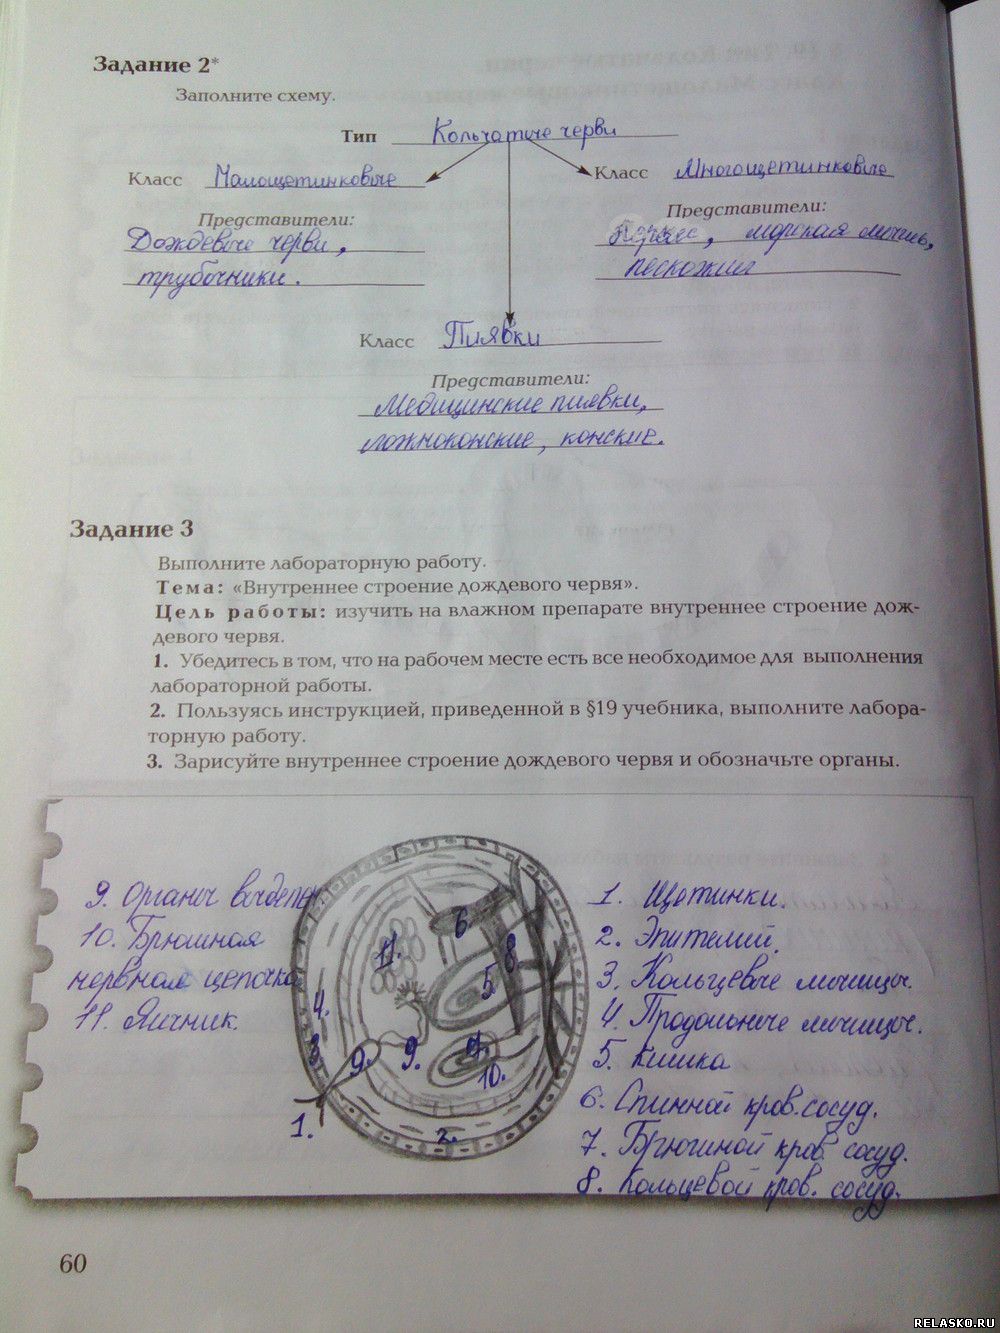 Задание 2*
Заполните схему.
Тип Кольчатые черви
Класс Малощетинковые
Класс Многощетинковые
Представители:
Дождевые черви,
трубочники.
Представители:
Нереис, морская мышь,
пескожил
Класс Пиявки
Представители:
Медицинские пиявки,
ложноконские, конские.
Задание 3
Выполните лабораторную работу.
Тема: «Внутреннее строение дождевого червя».
Цель работы: изучить на влажном препарате внутреннее строение дож-
девого червя.
1. Убедитесь в том, что на рабочем месте есть все необходимое для выполнения
лабораторной работы.
2. Пользуясь инструкцией, приведенной в §19 учебника, выполните лабора-
торную работу.
3. Зарисуйте внутреннее строение дождевого червя и обозначьте органы.
9. Органы выделен
10. Брюшная
нервная цепочка
11. Яичник.
6
11.
8
5
4.
3.
9.
9.
7.
10.
1.
2.
1. Щетинки.
2. Эпителий.
3. Кольцевые мышцы.
4. Продольные мышцы.
5. Кишка
6. Спинной кров. сосуд.
7. Брюшной кров. сосуд.
8. Кольцевой кров. сосуд.
60
RELASKO.RU